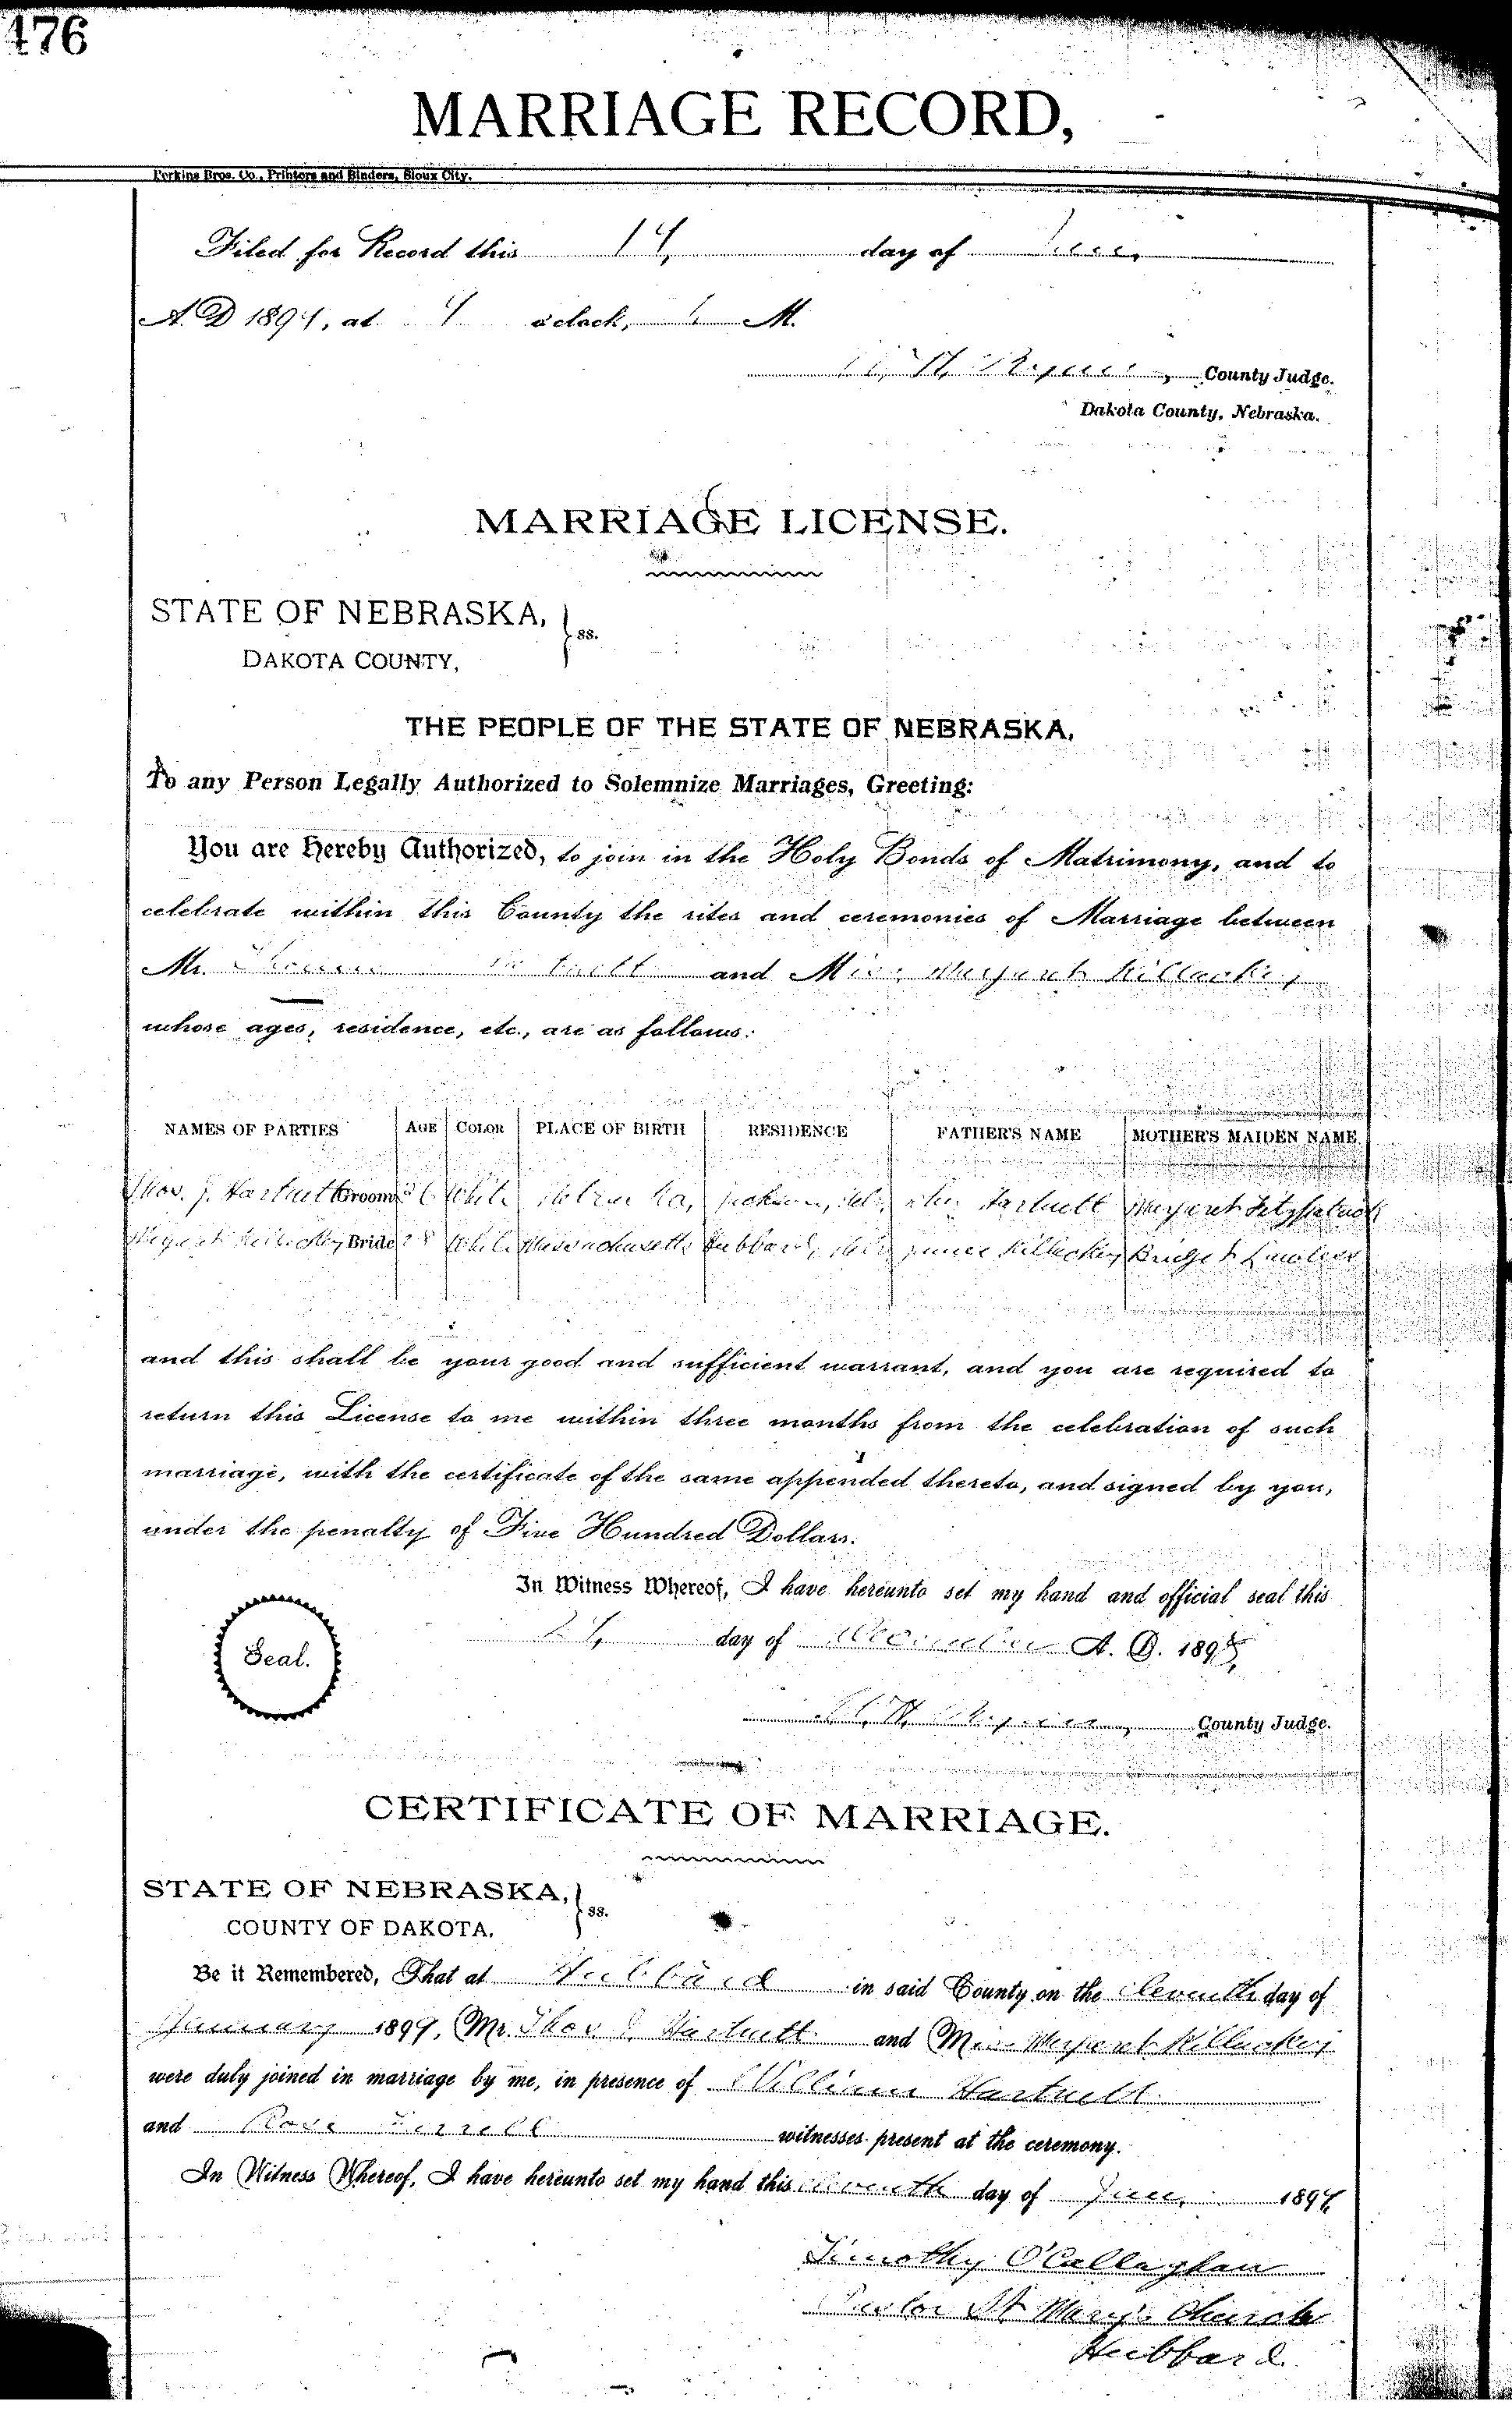 476
MARRIAGE RECORD,
Perkins Bros. Co., Printers and Binders, Sioux City.
Filed for Record this 14, day of
A. D 1899, at o'clock, M.
County Judge.
Dakota County, Nebraska.
MARRIAGE LICENSE.
STATE OF NEBRASKA, } ss.
DAKOTA COUNTY,
THE PEOPLE OF THE STATE OF NEBRASKA,
To any Person Legally Authorized to Solemnize Marriages, Greeting:
You are Hereby Authorized, to join in the Holy Bonds of Matrimony, and to
celebrate within this County the rites and ceremonies of Marriage between
Mr. Thomas Hartnett and Miss Margaret Killackey
whose ages, residence, etc., are as follows:
NAMES OF PARTIES AGE COLOR PLACE OF BIRTH RESIDENCE FATHER'S NAME MOTHER'S MAIDEN NAME.
Thos. J. Hartnett Groom White Jackson, Hartnett Margaret Fitzpatrick
Margaret Killackey Bride 28 White Massachusetts Hubbard, James Killackey Bridget Lawless
and this shall be your good and sufficient warrant, and you are required to
return this License to me within three months from the celebration of such
marriage, with the certificate of the same appended thereto, and signed by you,
under the penalty of Five Hundred Dollars.
In Witness Whereof, I have hereunto set my hand and official seal this
day of December A. D. 1898,
Seal.
County Judge.
CERTIFICATE OF MARRIAGE.
STATE OF NEBRASKA, } ss.
COUNTY OF DAKOTA.
Be it Remembered, That at Hubbard in said County on the eleventh day of
January 1899, Mr. Thos J. Hartnett and Miss Margaret Killackey
were duly joined in marriage by me, in presence of William Hartnett
and Rose witnesses present at the ceremony.
In Witness Whereof, I have hereunto set my hand this eleventh day of Jan. 1899
Timothy O'Callaghan
Pastor St Mary's Church
Hubbard.